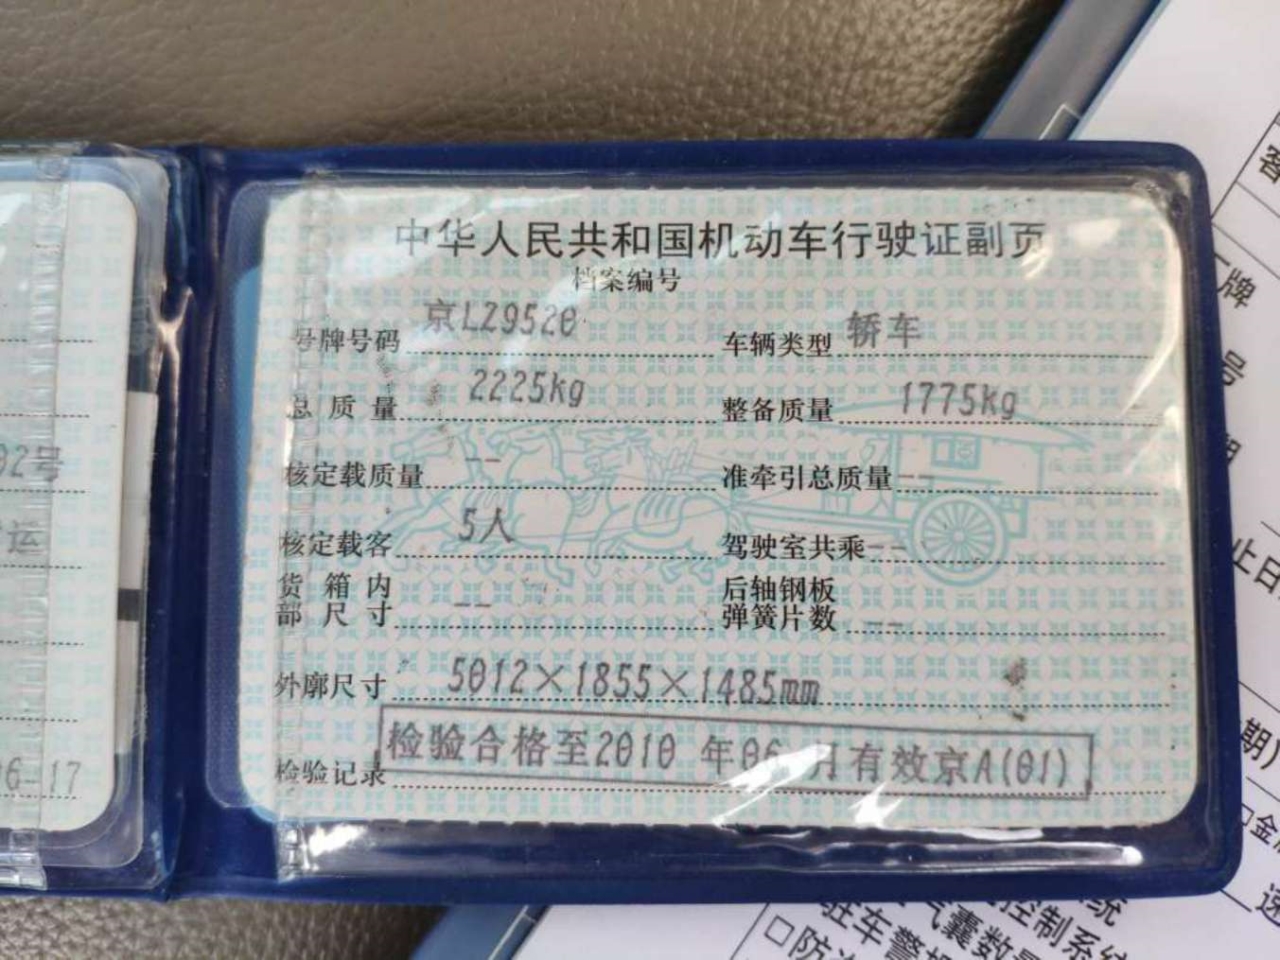 中华人民共和国机动车行驶证副页
档案编号
号牌号码 京LZ9520 车辆类型 轿车
总质量 2225kg 整备质量 1775kg
核定载质量 -- 准牵引总质量 --
核定载客 5人 驾驶室共乘 --
货箱内 后轴钢板
部尺寸 -- 弹簧片数 --
外廓尺寸 5012×1855×1485mm
检验记录 检验合格至2010年06月有效京A(01)
02号
运
6-17
牌
号
止日
期)
□金
速
统
控制系统
气囊数
驻车警报
□防